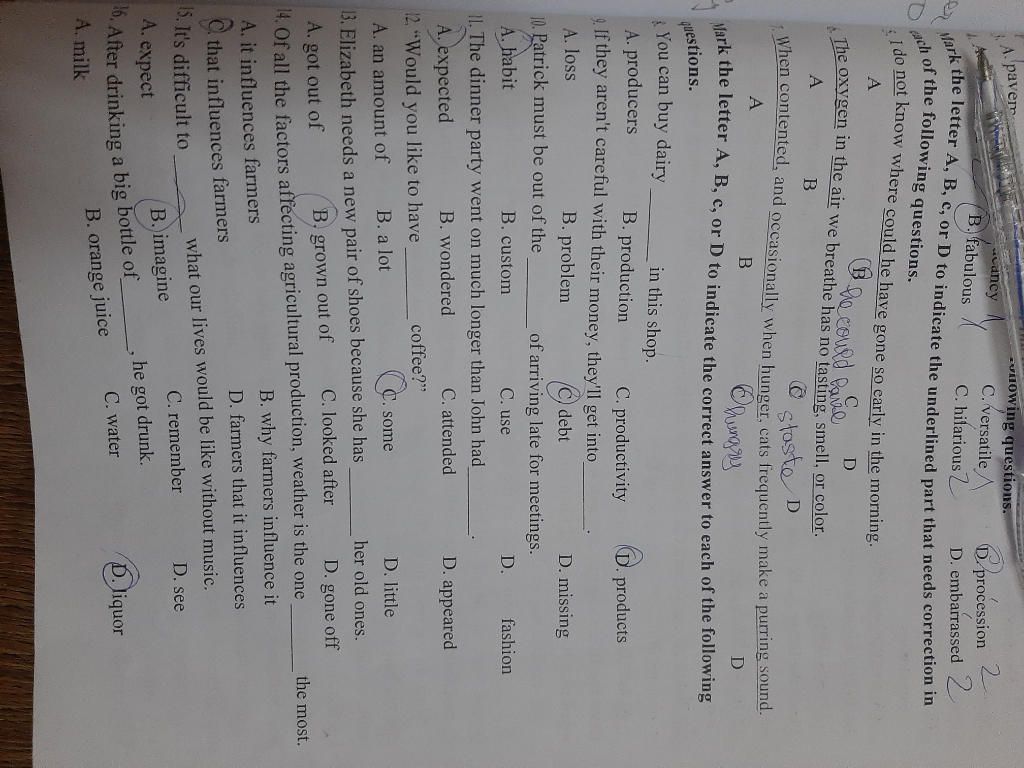 3. A. pavem
C. versatile 1
D. procession 2
B. fabulous 1
C. hilarious 2
D. embarrassed 2
Mark the letter A, B, c, or D to indicate the underlined part that needs correction in
each of the following questions.
5. I do not know where could he have gone so early in the morning.
A B C D
he could have
6. The oxygen in the air we breathe has no tasting, smell, or color.
A B C D
7. When contented, and occasionally when hunger, cats frequently make a purring sound.
A B C hungry D
Mark the letter A, B, c, or D to indicate the correct answer to each of the following
questions.
8. You can buy dairy ______ in this shop.
A. producers B. production C. productivity D. products
9. If they aren't careful with their money, they'll get into______.
A. loss B. problem C. debt D. missing
10. Patrick must be out of the ______ of arriving late for meetings.
A. habit B. custom C. use D. fashion
11. The dinner party went on much longer than John had______.
A. expected B. wondered C. attended D. appeared
12. "Would you like to have ______ coffee?"
A. an amount of B. a lot C. some D. little
13. Elizabeth needs a new pair of shoes because she has ______ her old ones.
A. got out of B. grown out of C. looked after D. gone off
14. Of all the factors affecting agricultural production, weather is the one ______ the most.
A. it influences farmers B. why farmers influence it
C. that influences farmers D. farmers that it influences
15. It's difficult to ______ what our lives would be like without music.
A. expect B. imagine C. remember D. see
16. After drinking a big bottle of______, he got drunk.
A. milk B. orange juice C. water D. liquor